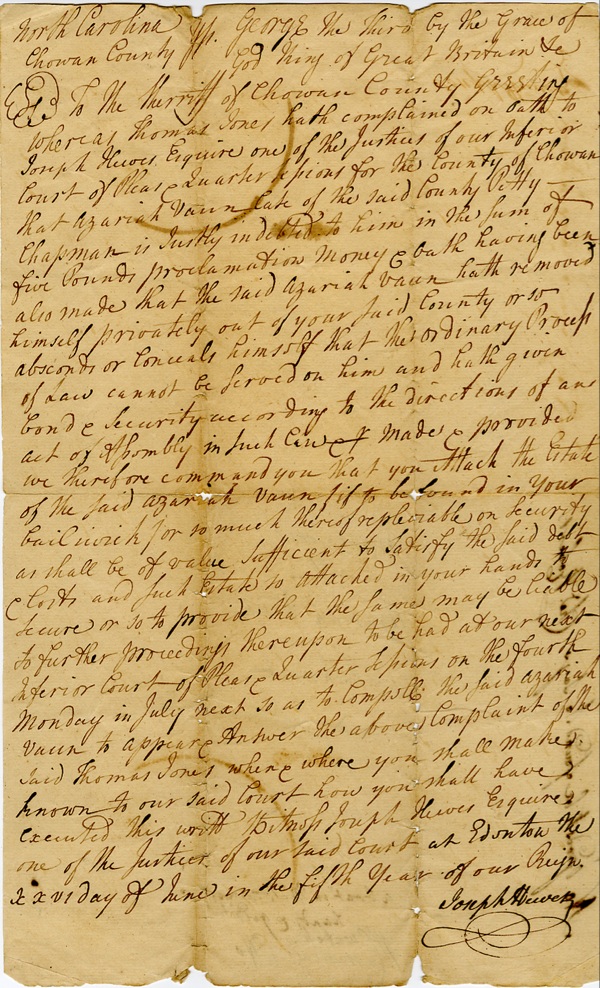 North Carolina } ss. George the Third by the Grace of
Chowan County God King of Great Britain &c
To the Sherriff of Chowan County Greeting
Whereas Thomas Jones hath complained on oath to
Joseph Hewes Esquire one of the Justices of our Inferior
Court of Pleas & Quarter sessions for the County of Chowan
that Azariah Vaun late of the said County Petty
Chapman is Justly indebted to him in the sum of
five Pounds proclamation Money & oath having been
also made that the said Azariah Vaun hath removed
himself privately out of your said County or so
absconds or Conceals himself that the ordinary Process
of Law cannot be served on him and hath given
bond & Security according to the directions of an
act of Assembly in such Case made & provided
we therefore command you that you Attack the Estate
of the said Azariah Vaun if to be found in Your
bailiwick or so much thereof repleviable on Security
as shall be of value Sufficient to Satisfy the said debt
& Costs and such Estate so Attached in your hands to
Secure or so to provide that the same may be liable
to further proceedings thereupon to be had at our next
Inferior Court of Pleas & Quarter Sessions on the fourth
Monday in July next so as to Compell the said Azariah
Vaun to appear & Answer the above Complaint of the
said Thomas Jones when & where you shall make
known to our said Court how you shall have
Executed this writt Witness Joseph Hewes Esquire
one of the Justices of our said Court at Edenton the
xxvi day of June in the fifth Year of our Reign.
Joseph Hewes